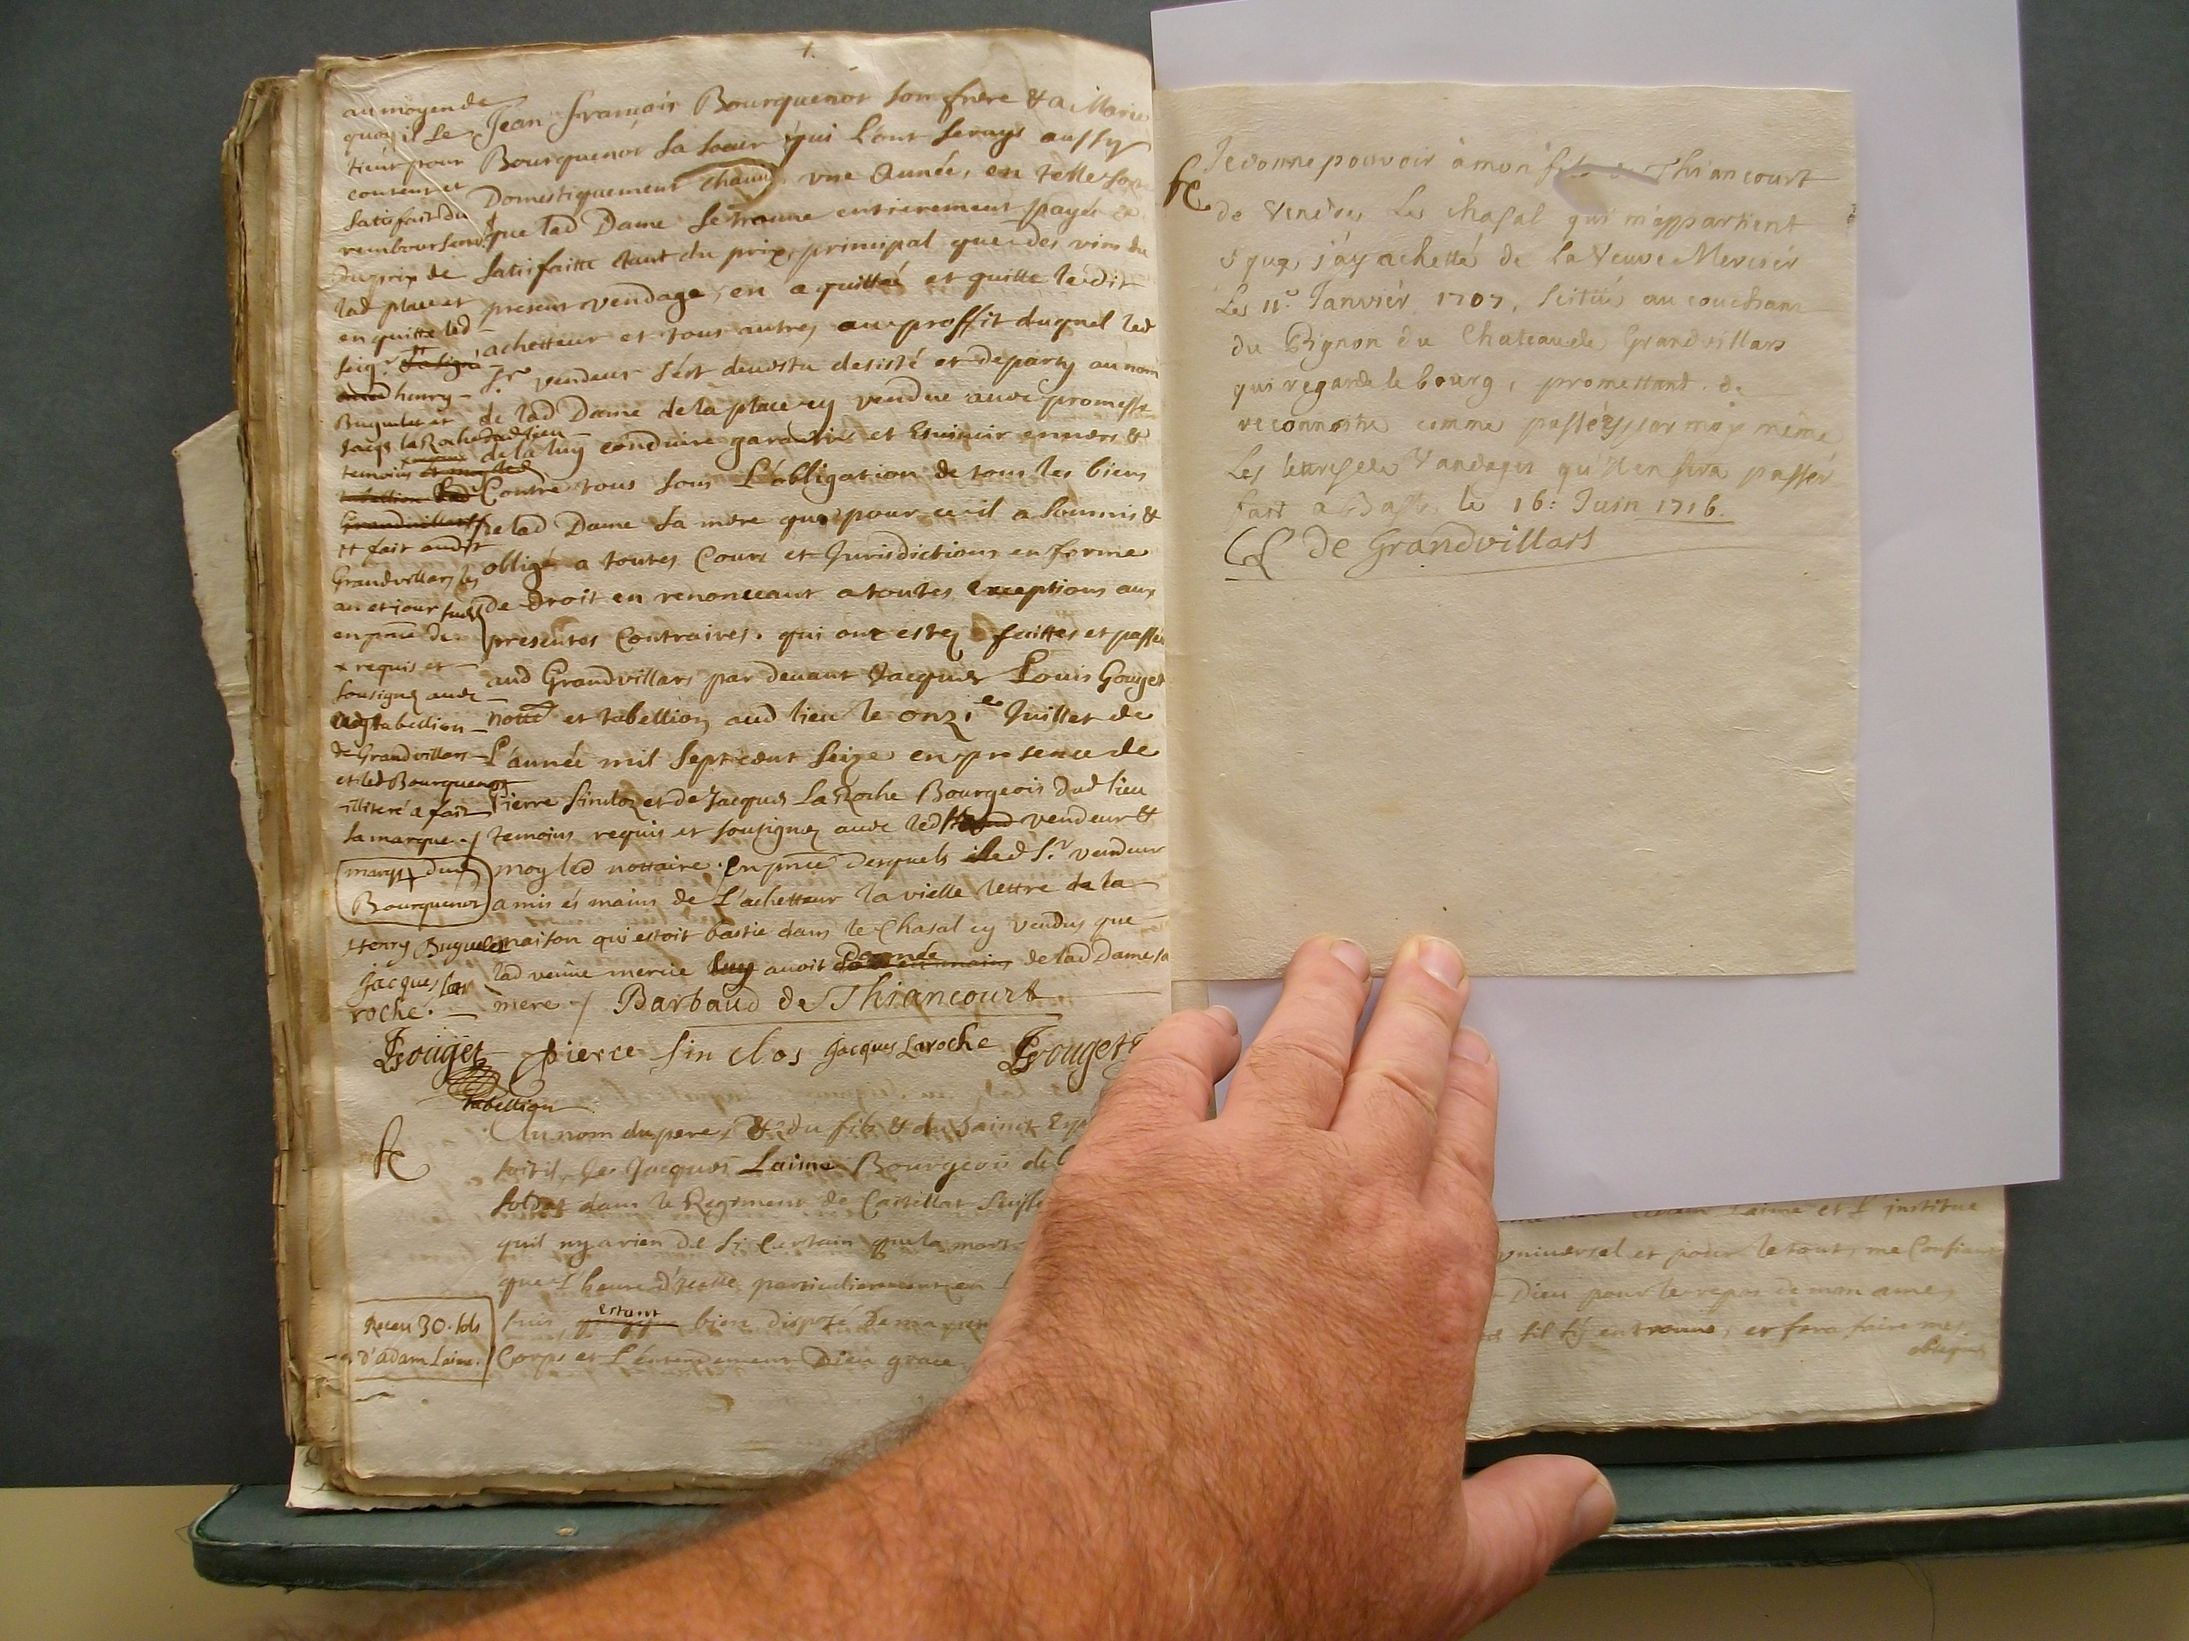 au moyen de
quoy il se
tient pour
content et
satisfait du
rembourssem.t
du prix de
lad place et
en quitte led
seig.r
henry
Buguelet et
Jacq laRoche dud lieu
temoins
Grandvillars
et fait audit
Grandvillars les
an et jour susd
en pnce de
x requis et
sousignez avec
tabellion
de Grandvillars
et led Bourquenot
illiteré a fait
sa marque ./
marq + dud
Bourquenot
Henry Buguelet
Jacques lar
roche.
Jean François Bourquenot son frère & a Marie
Bourquenot sa soeur qui l'ont servys aussy
Domestiquement chacun vne Année, en telle sorte
que lad Dame se trouue entierement payée &
satisfaitte tant du prix principal que des vins du
present vendage, en a quitté et quitte ledit
achetteur et tous autres au proffit duquel led
S.r vendeur s'est deuestu desisté et departy au nom
de lad Dame de la place cy vendue auec promesse
de la luy conduire garantir et Euincir enuers &
Contre tous sous L'obligation de tous les biens
de lad Dame sa mere que pour ce il a soumis &
obligé a toutes Cours et Jurisdictions en forme
de droit en renonceant a toutes exceptions aux
presentes Contraires. qui ont estez faittes et passées
aud Grandvillars par deuant Jacques Louis Gouget
nott.e et tabellion aud lieu le onzi.e Juillet de
L'année mil sept cent seize en presence de
Pierre Sinclos et de Jacques LaRoche Bourgeois dud lieu
temoins requis et sousignez auec led vendeur &
moy led nottaire. en pnce desquels led S.r vendeur
a mis és mains de L'achetteur la vielle lettre de la
maison qui estoit bastie dans le Chasal cy vendus que
lad veuue mercie luy auoit donnée de lad Dame sa
mere ./ Barbaud de Thiancourt
Gouget pierre sin clos Jacques Laroche Gouget
tabellion
Au nom du pere, & du fils & du Saint
soit il, Je Jacques Laime Bourgeois de
soldat dans le Regiment de Castellat Suisse
quil ny a rien de si Certain que la mort
que L'heure d'icelle particulierement en
suis estant bien disposé de ma
Corps et L'entendement Dieu grace
Receu 30. sols
d'adam Laime.
Je donne pouvoir a mon fils de Thiancourt
de vendre Le chasal qui m'appartient
& que j'ay achetté de La Veuve Mercier
Les 11.e Janvier 1707, scitüé au couchant
du Pignon du Chateau de Grandvillars
qui regarde le bourg, promettant de
reconnoitre comme passées par moy même
Les lettres de Vandages qu'il en fera passer
fait a Basle le 16: Juin 1716.
de Grandvillars
Laime et L'institue
vniuersel et pour le tout, me Confiant
Dieu pour le repos de mon ame,
sil sy en trouue, et fera faire mes
obseques